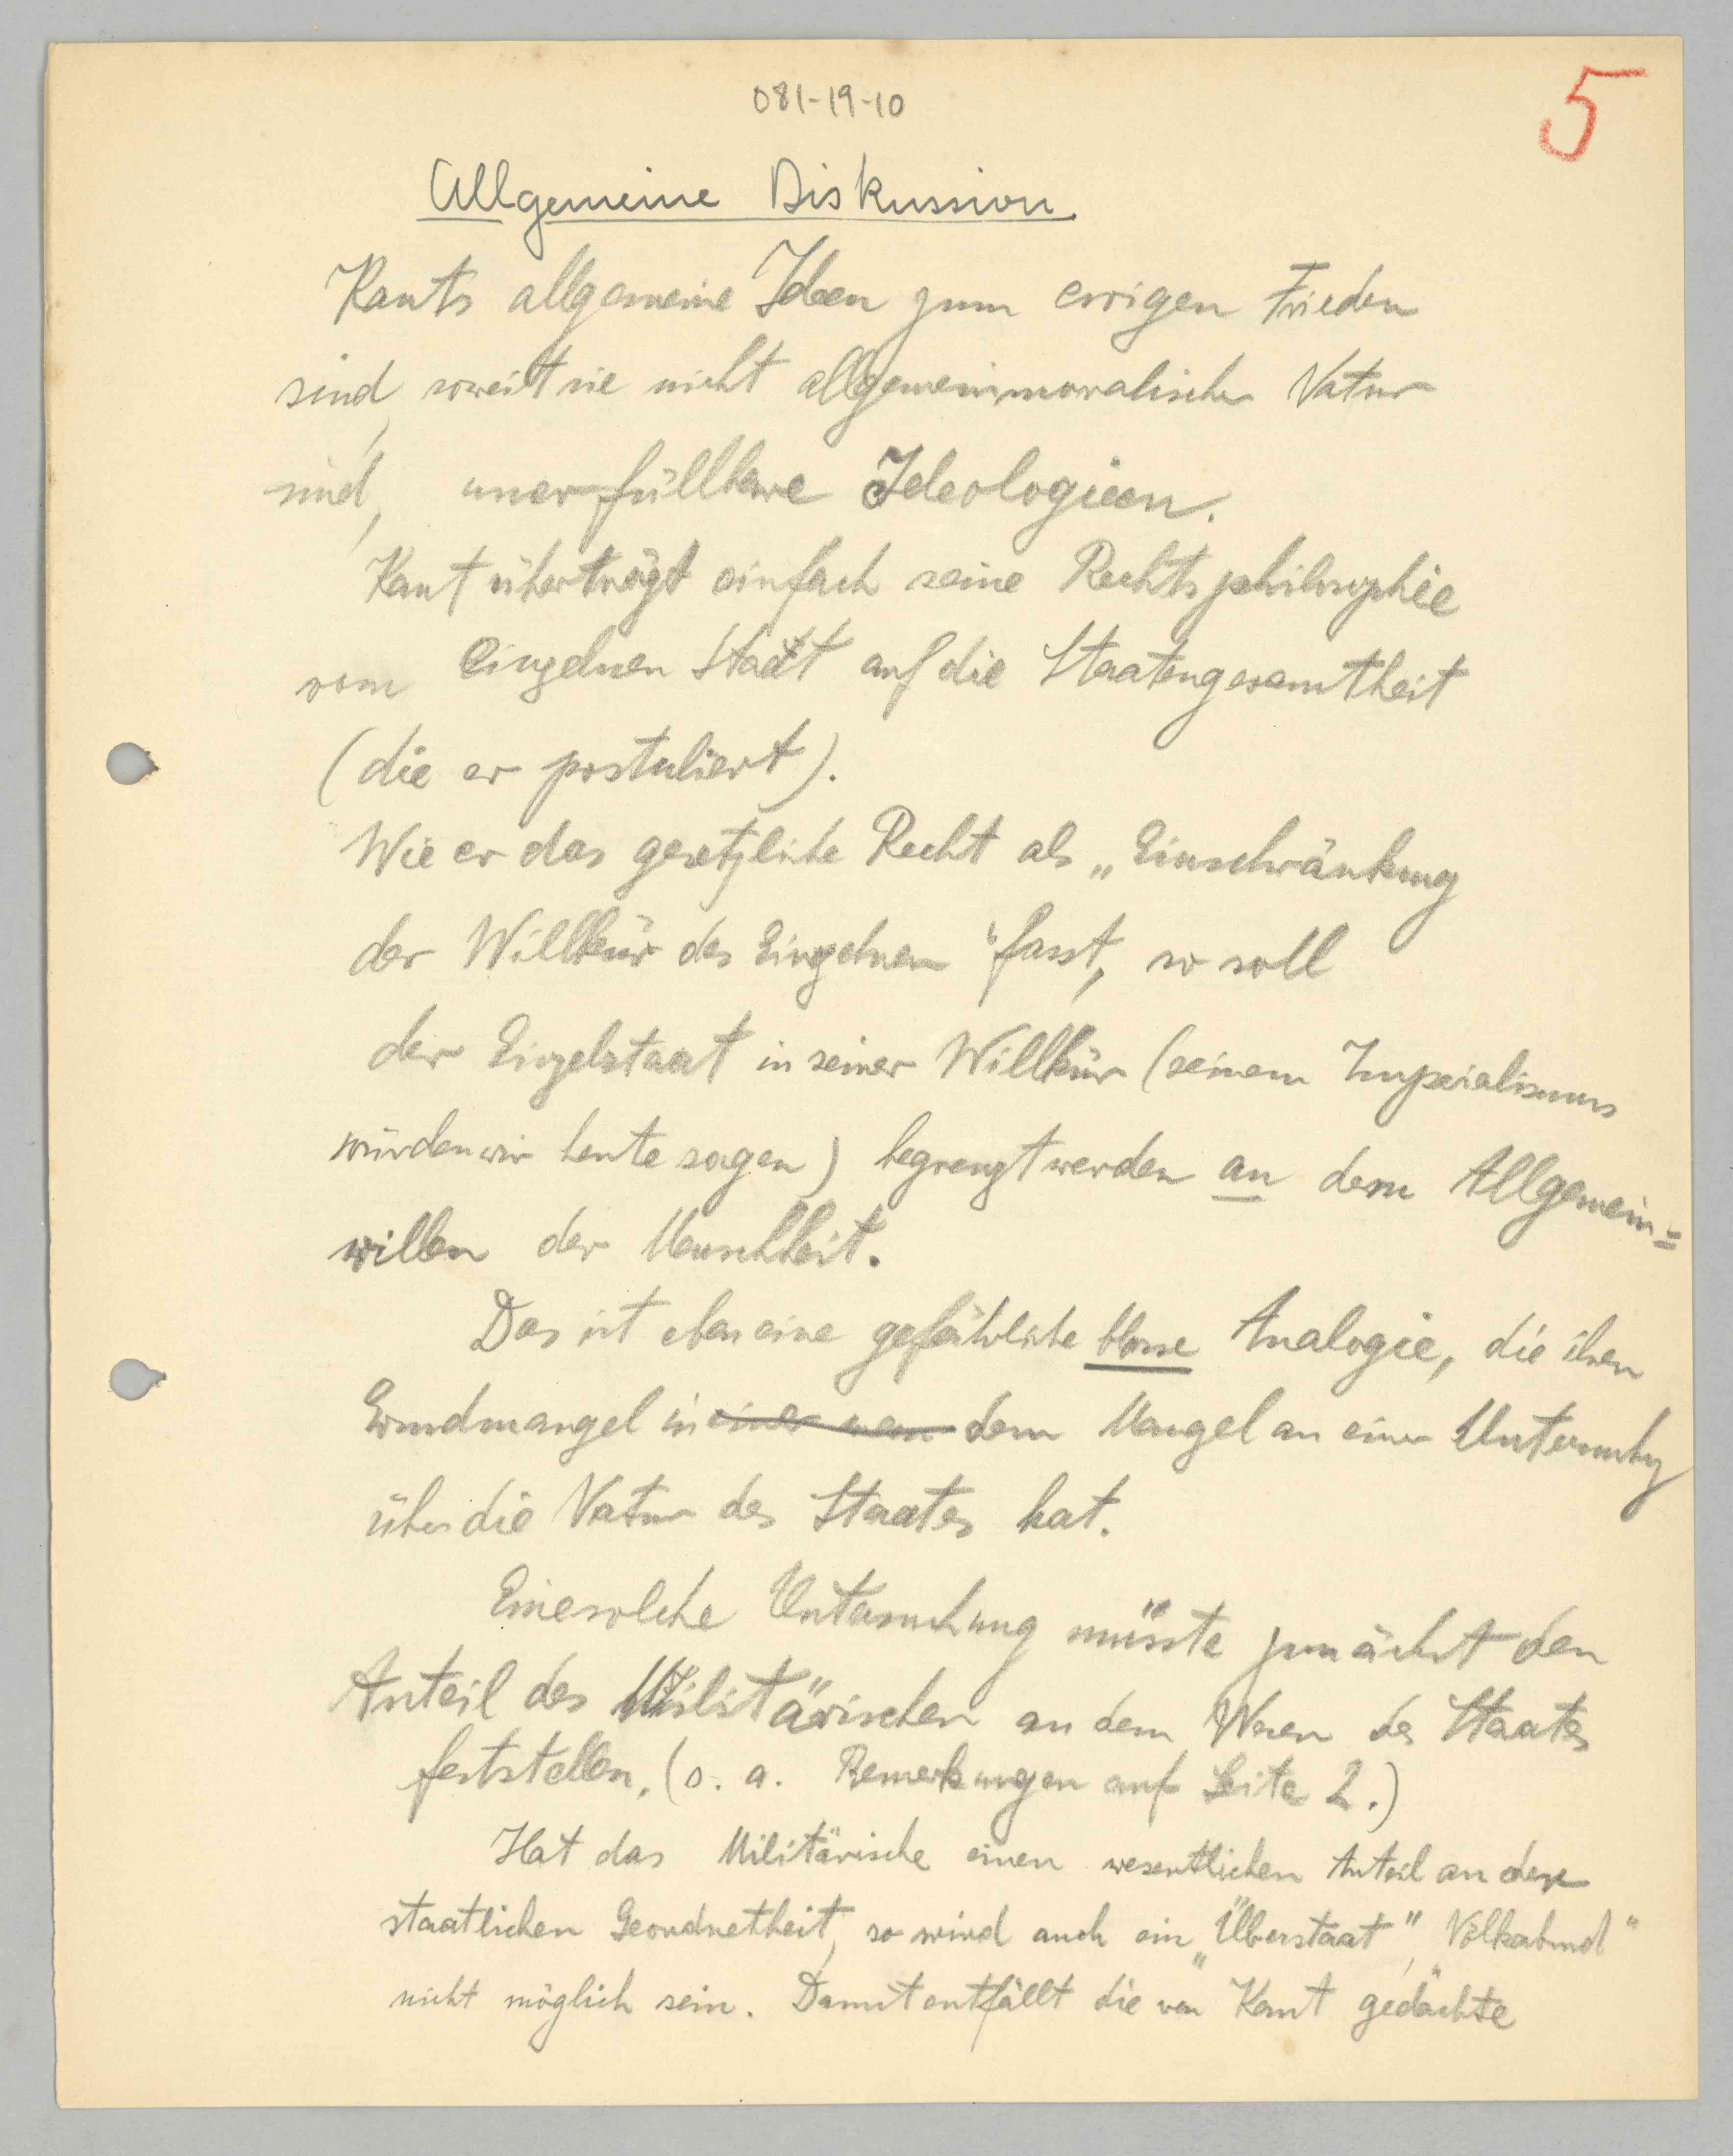 081-19-10
5
Allgemeine Diskussion.
Kants allgemeine Ideen zum ewigen Frieden
sind, soweit sie nicht allgemeinmoralischer Natur
sind, unerfüllbare Ideologieen.
Kant überträgt einfach seine Rechtsphilosophie
vom einzelnen Staat auf die Staatengesamtheit
(die er postuliert).
Wie er das gesetzliche Recht als „Einschränkung
der Willkür des Einzelnen“ fasst, so soll
der Einzelstaat in seiner Willkür (seinem Imperialismus
würden wir heute sagen) begrenzt werden an dem Allgemein=
willen der Menschheit.
Das ist eben eine gefährliche blosse Analogie, die ihren
Grundmangel in einer dem Mangel an einer Untersuchg
über die Natur des Staates hat.
Eine solche Untersuchung müsste zunächst den
Anteil des Militärischen an dem Wesen des Staates
feststellen. (s. a. Bemerkungen auf Seite 2.)
Hat das Militärische einen wesentlichen Anteil an der
staatlichen Geordnetheit, so wird auch ein „Überstaat“, „Völkerbund“
nicht möglich sein. Damit entfällt die von Kant gedachte